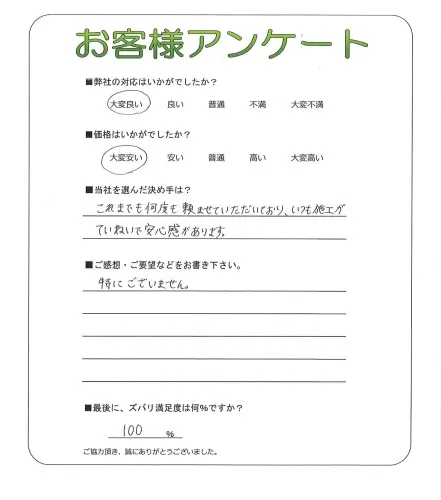 お客様アンケート
■弊社の対応はいかがでしたか？
大変良い 良い 普通 不満 大変不満
■価格はいかがでしたか？
大変安い 安い 普通 高い 大変高い
■当社を選んだ決め手は？
これまでも何度も頼ませていただいており、いつも施工が
ていねいで安心感があります。
■ご感想・ご要望などをお書き下さい。
特にございません。
■最後に、ズバリ満足度は何%ですか？
100 %
ご協力頂き、誠にありがとうございました。